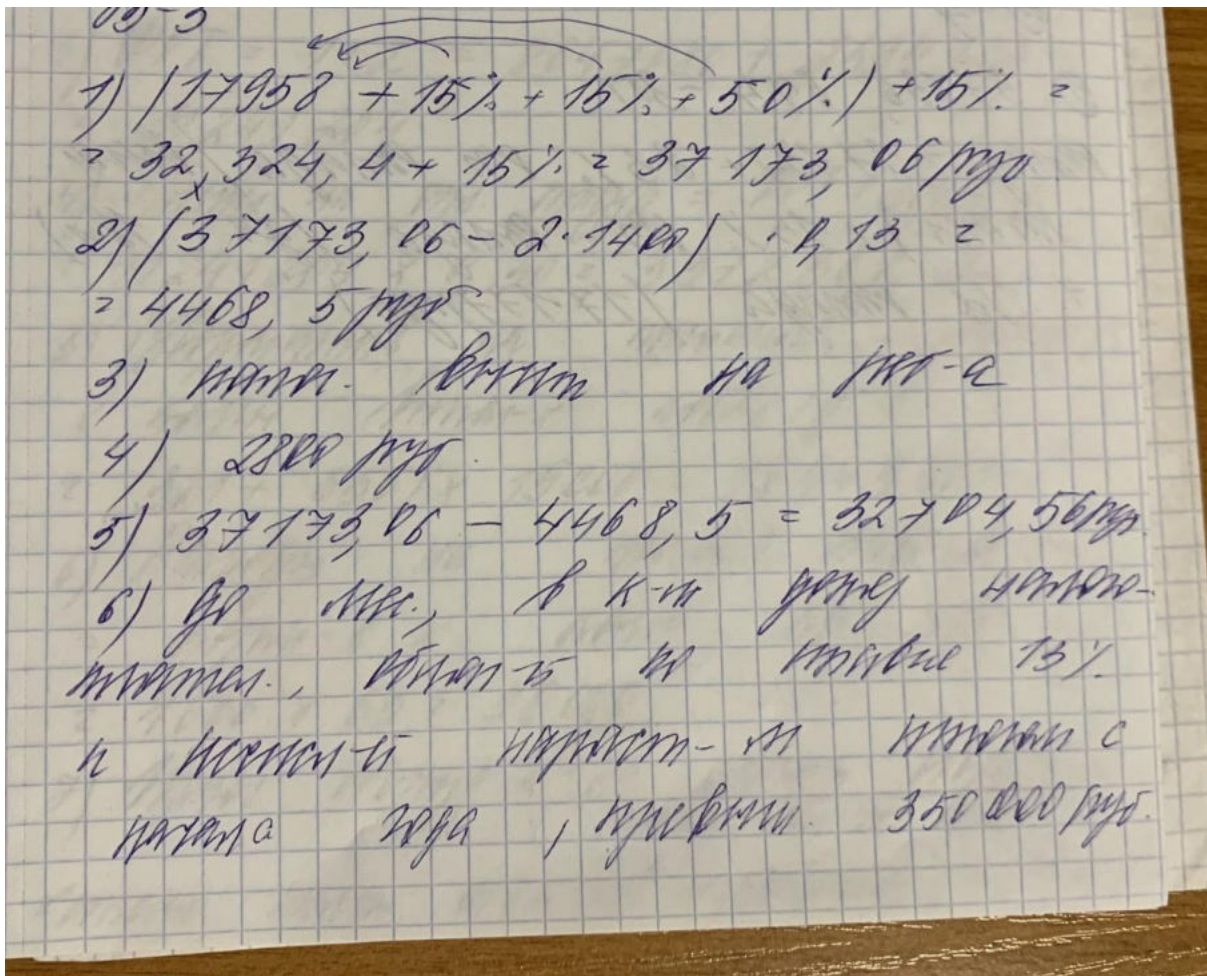 1) (17958 + 15% + 15% + 50%) + 15% =
= 32 324, 4 + 15% = 37 173, 06 руб
2) (37173, 06 - 2·1400) · 0,13 =
= 4468, 5 руб
3) налог. вычет на реб-а
4) 2800 руб.
5) 37173,06 - 4468, 5 = 32704,56 руб.
6) до мес., в к-м доход налого-
плател., облаг-й по ставке 13%
и исчисл-й нараст-м итогом с
начала года, превыш. 350 000 руб.